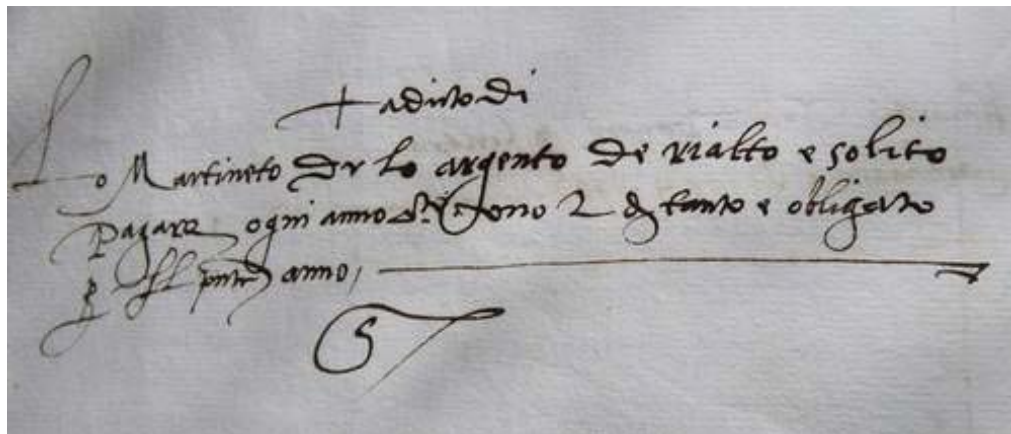 + a di vto di
Lo Martineto de lo argento de rialto e solito
pagare ogni anno uno 2 di tanto e obligato
p il pnte anno,